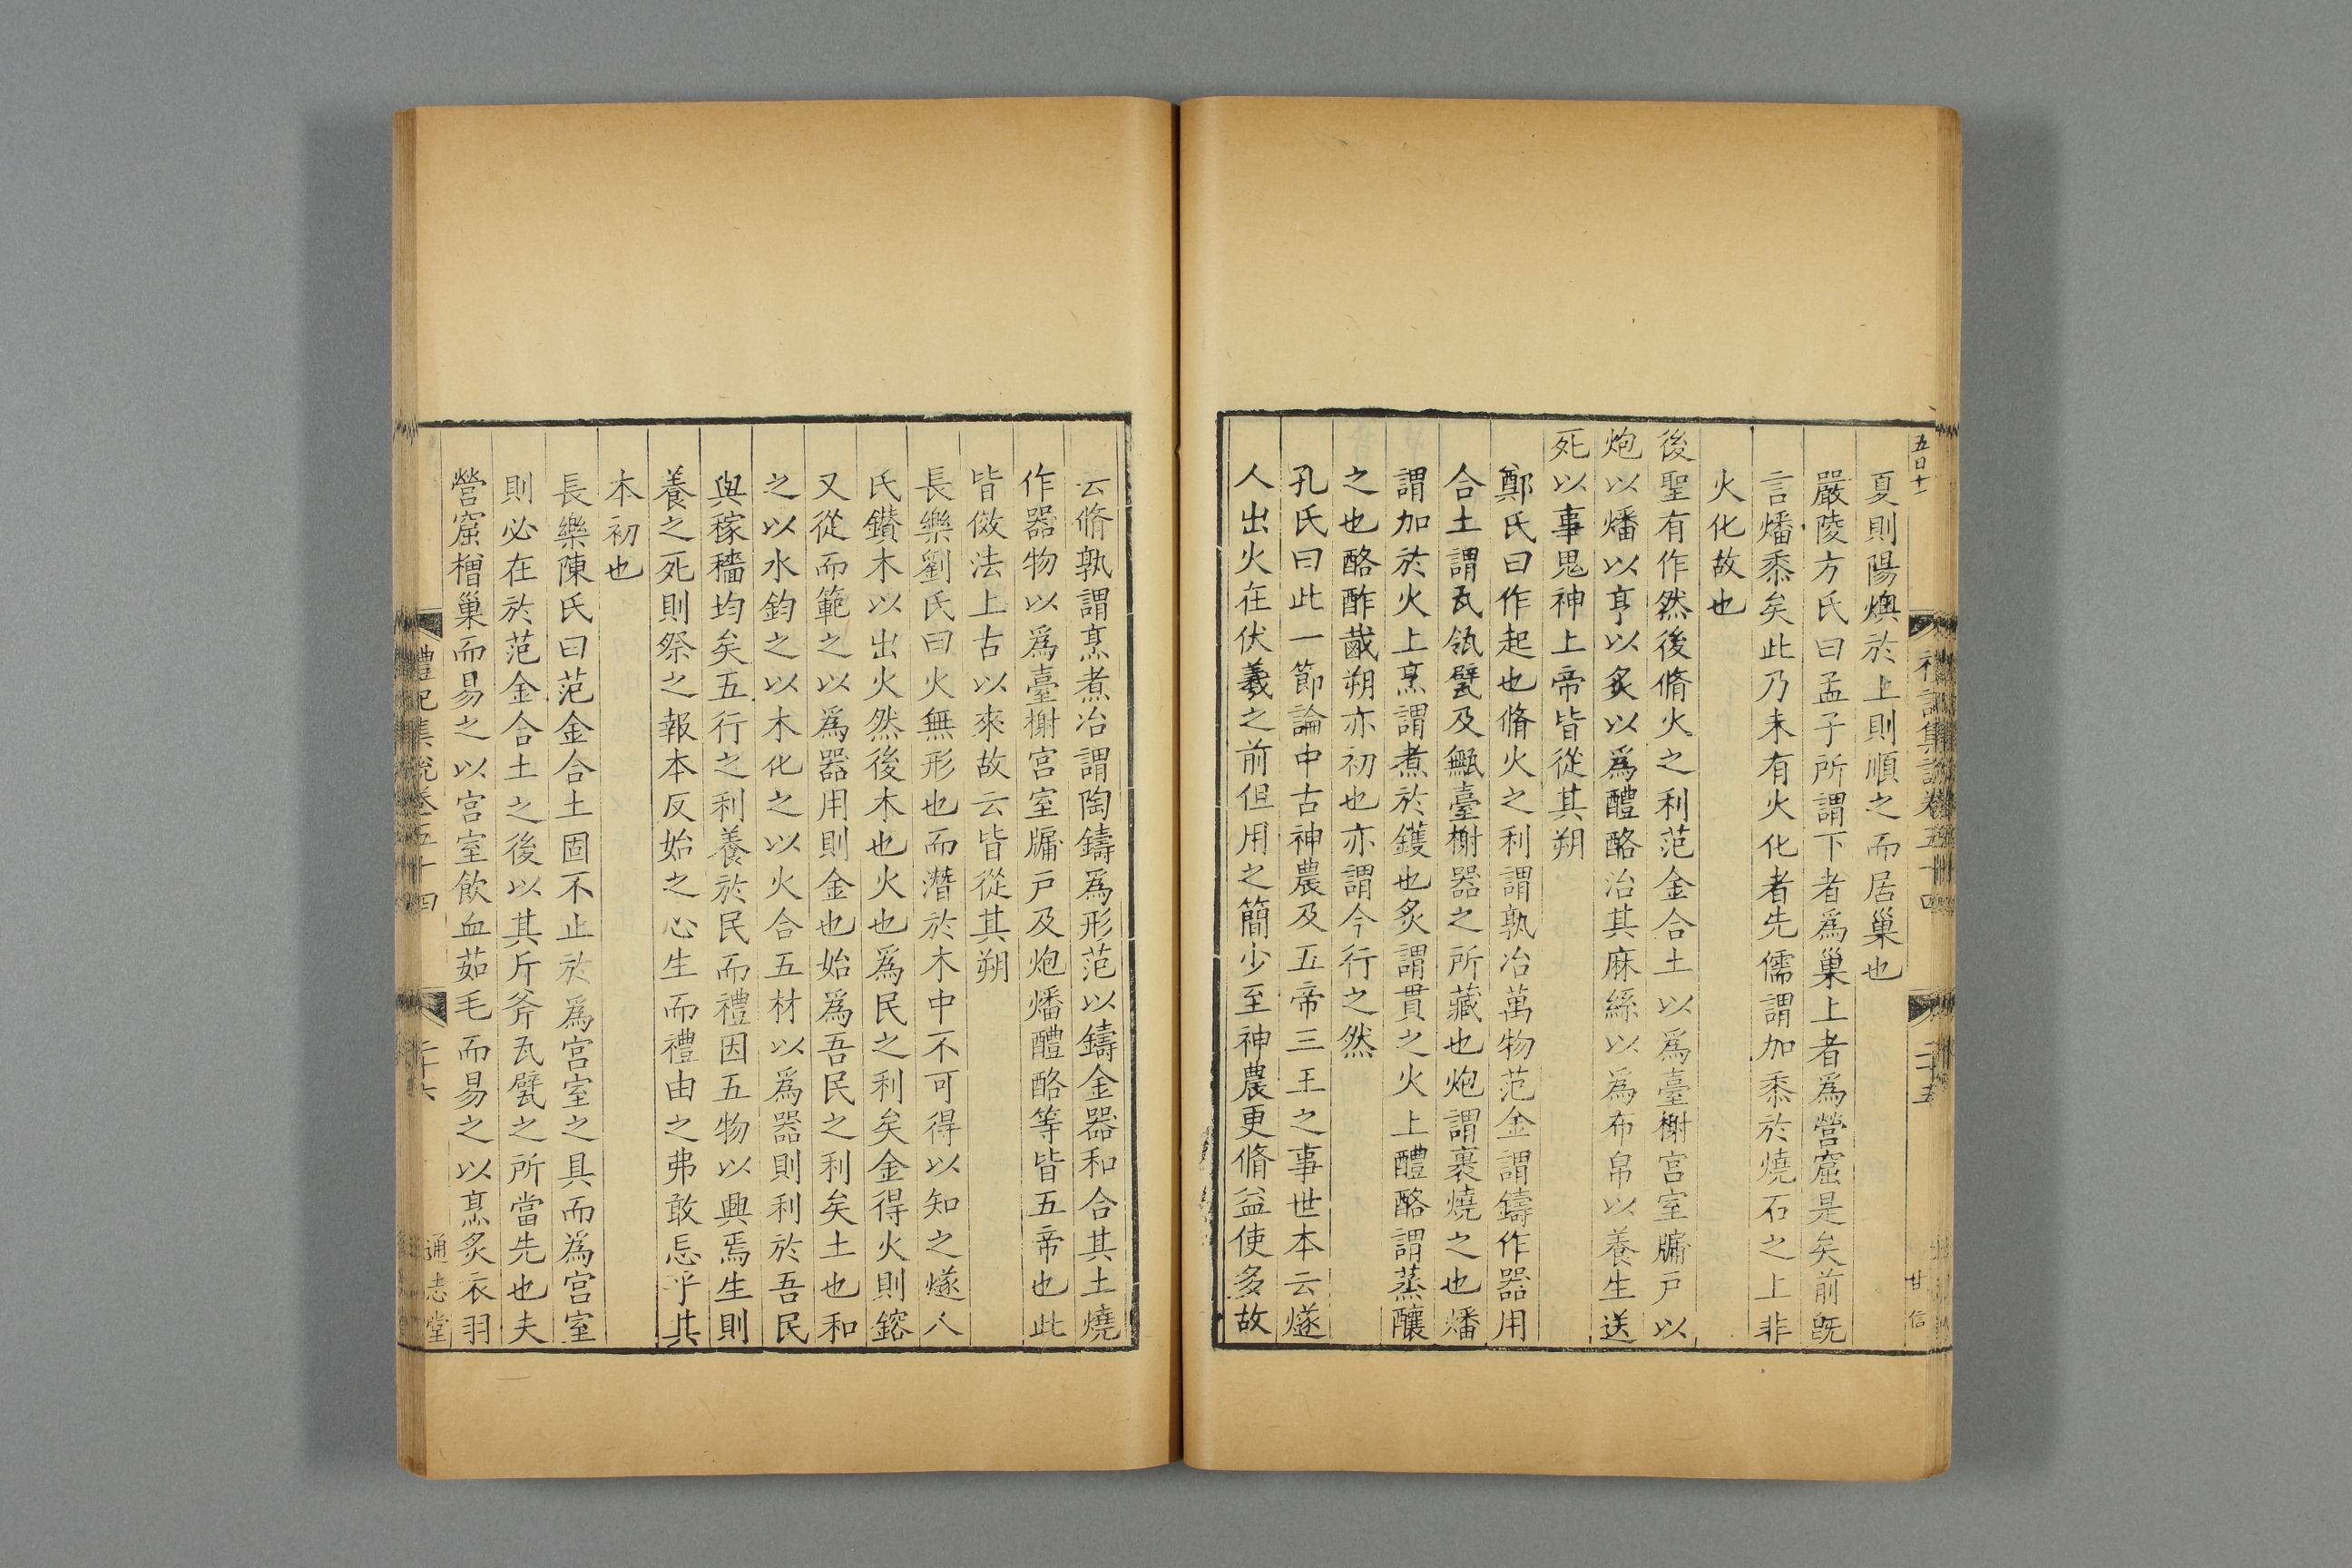 五日十一
禮記集說卷五十四
二十五
甘信
夏則陽燠於上則順之而居巢也
嚴陵方氏曰孟子所謂下者爲巢上者爲營窟是矣前旣
言燔黍矣此乃未有火化者先儒謂加黍於燒石之上非
火化故也
後聖有作然後脩火之利范金合土以爲臺榭宮室牖戶以
炮以燔以亨以炙以爲醴酪治其麻絲以爲布帛以養生送
死以事鬼神上帝皆從其朔
鄭氏曰作起也脩火之利謂孰冶萬物范金謂鑄作器用
合土謂瓦瓴甓及甒臺榭器之所藏也炮謂裹燒之也燔
謂加於火上烹謂煮於鑊也炙謂貫之火上醴酪謂蒸釀
之也酪酢胾朔亦初也亦謂今行之然
孔氏曰此一節論中古神農及五帝三王之事世本云燧
人出火在伏羲之前但用之簡少至神農更脩益使多故
云脩孰謂烹煮冶謂陶鑄爲形范以鑄金器和合其土燒
作器物以爲臺榭宮室牖戶及炮燔醴酪等皆五帝也此
皆倣法上古以來故云皆從其朔
長樂劉氏曰火無形也而潛於木中不可得以知之燧人
氏鑚木以出火然後木也火也爲民之利矣金得火則鎔
又從而範之以爲器用則金也始爲吾民之利矣土也和
之以水鈞之以木化之以火合五材以爲器則利於吾民
與稼穡均矣五行之利養於民而禮因五物以興焉生則
養之死則祭之報本反始之心生而禮由之弗敢忘乎其
本初也
長樂陳氏曰范金合土固不止於爲宮室之具而爲宮室
則必在於范金合土之後以其斤斧瓦甓之所當先也夫
營窟橧巢而易之以宮室飲血茹毛而易之以烹炙衣羽
禮記集說卷五十四
二十六
通志堂